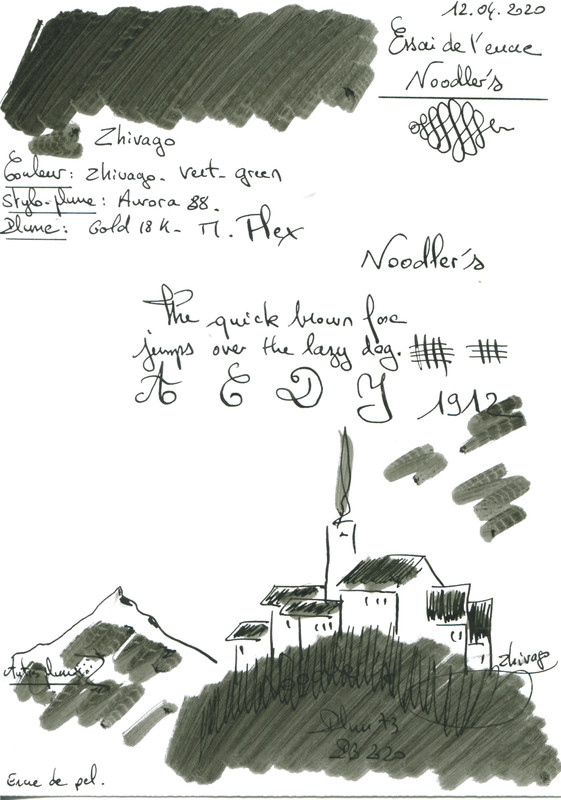 12.04.2020
Essai de l'encre
Noodler's
Zhivago
Couleur: Zhivago. vert- green
Stylo-plume: Aurora 88.
Plume: Gold 18 K- M. Flex
Noodler's
The quick brown fox
jumps over the lazy dog.
A E D J 1912
Zhivago